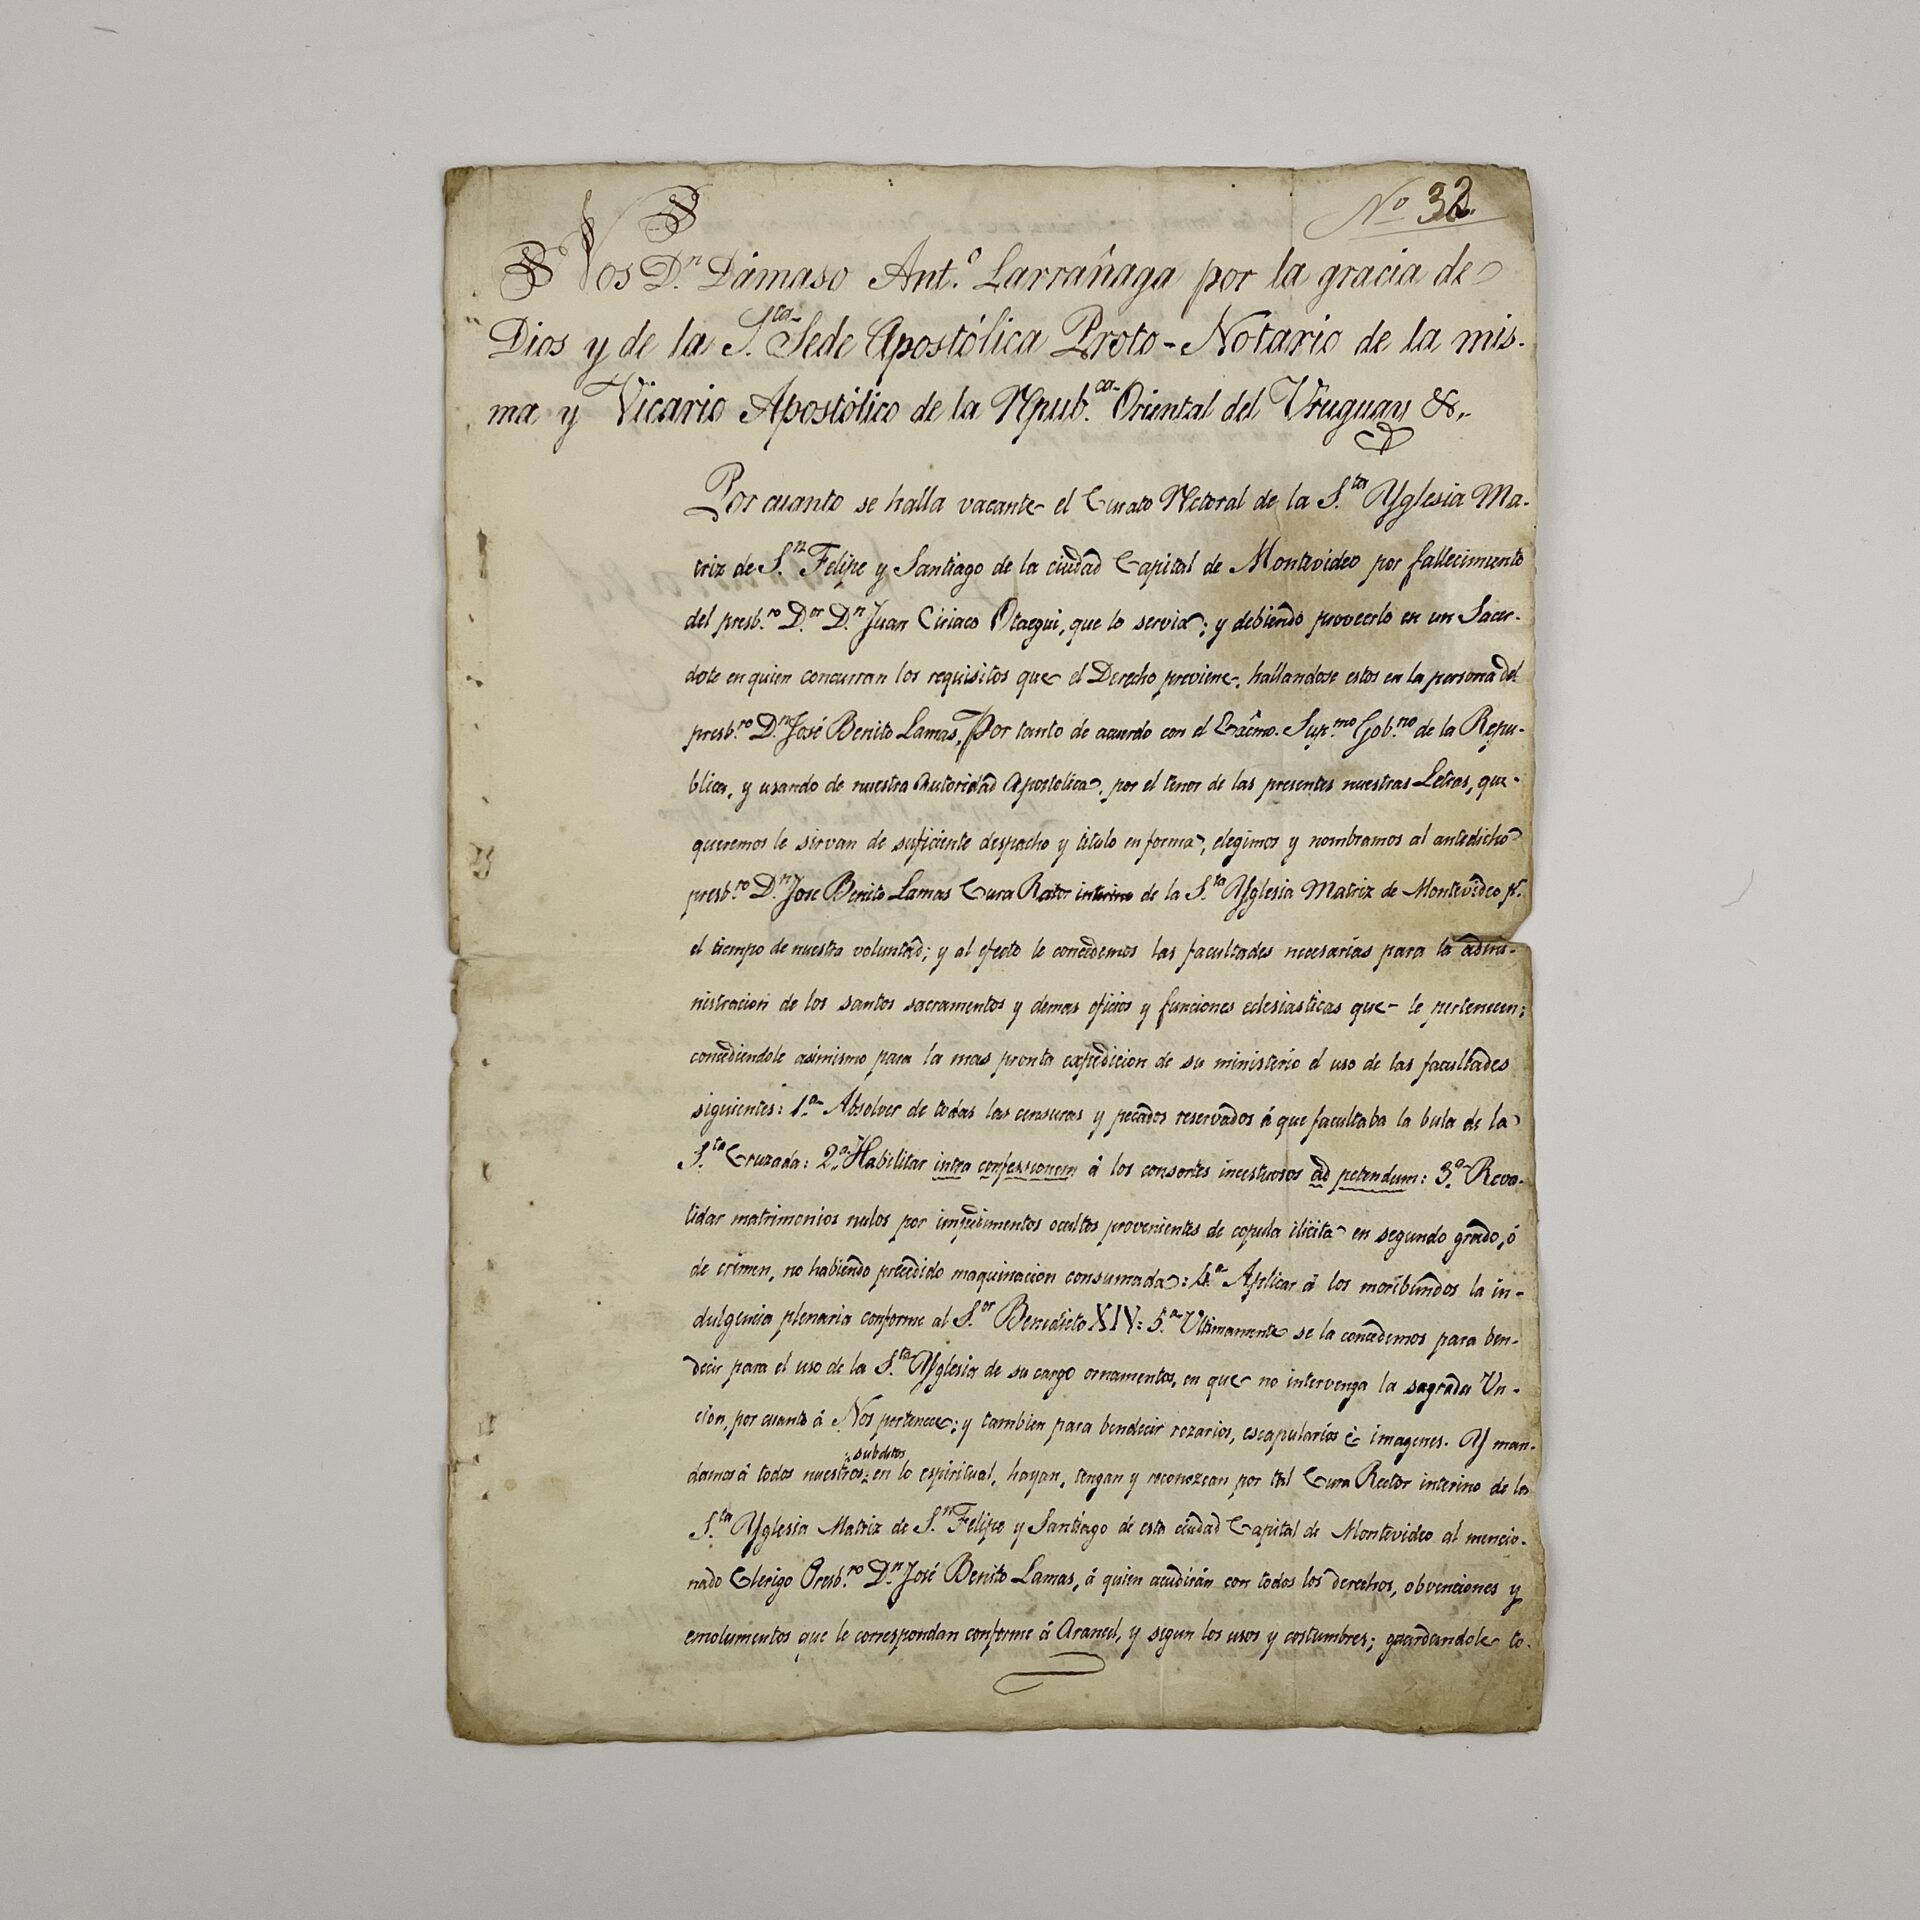 Nº 32.
Nos D.n Dámaso Ant.º Larrañaga por la gracia de
Dios y de la S.ta Sede Apostólica Proto-Notario de la mis-
ma y Vicario Apostólico de la Rpub.ca Oriental del Uruguay &.
Por cuanto se halla vacante el Curato Rectoral de la S.ta Yglesia Ma-
triz de S.n Felipe y Santiago de la ciudad Capital de Montevideo por fallecimiento
del presb.ro D.or D.n Juan Ciriaco Otaegui, que lo servia; y debiendo proveerlo en un Sacer-
dote en quien concurran los requisitos que el Derecho previene, hallandose estos en la persona del
presb.ro D.n José Benito Lamas, Por tanto de acuerdo con el Exc̃mo. Sup.mo Gob.no de la Repu-
blica, y usando de nuestra Autoridad Apostolica, por el tenor de las presentes nuestras Letras, que-
queremos le sirvan de suficiente despacho y titulo en forma, elegimos y nombramos al antedicho
presb.ro D.n José Benito Lamas Cura Rector interino de la S.ta Yglesia Matriz de Montevideo p.r
el tiempo de nuestra voluntad; y al efecto le concedemos las facultades necesarias para la admi-
nistracion de los santos sacramentos y demas oficios y funciones eclesiasticas que le pertenecen;
concediendole asimismo para la mas pronta expedicion de su ministerio el uso de las facultades
siguientes: 1.a Absolver de todas las censuras y pecados reservados á que facultaba la bula de la
S.ta Cruzada: 2.a Habilitar intra confessionem á los consortes incestuosos ad petendum: 3.a Reva-
lidar matrimonios nulos por impedimentos ocultos provenientes de copula ilicita en segundo grado, ó
de crimen, no habiendo precedido maquinacion consumada: 4.a Aplicar á los moribundos la in-
dulgencia plenaria conforme al S.or Benedicto XIV: 5.a Ultimamente se la concedemos para ben-
decir para el uso de la S.ta Yglesia de su cargo ornamentos, en que no intervenga la sagrada Un-
cion, por cuanto á Nos pertenece; y tambien para bendecir rozarios, escapularios é imagenes. Y man-
subditos
damos á todos nuestros en lo espiritual, hayan, tengan y reconozcan por tal Cura Rector interino de la
S.ta Yglesia Matriz de S.n Felipe y Santiago de esta ciudad Capital de Montevideo al mencio-
nado Clerigo Presb.ro D.n José Benito Lamas, á quien acudirán con todos los derechos, obvenciones y
emolumentos que le correspondan conforme á Arancel, y segun los usos y costumbres; guardandole to-